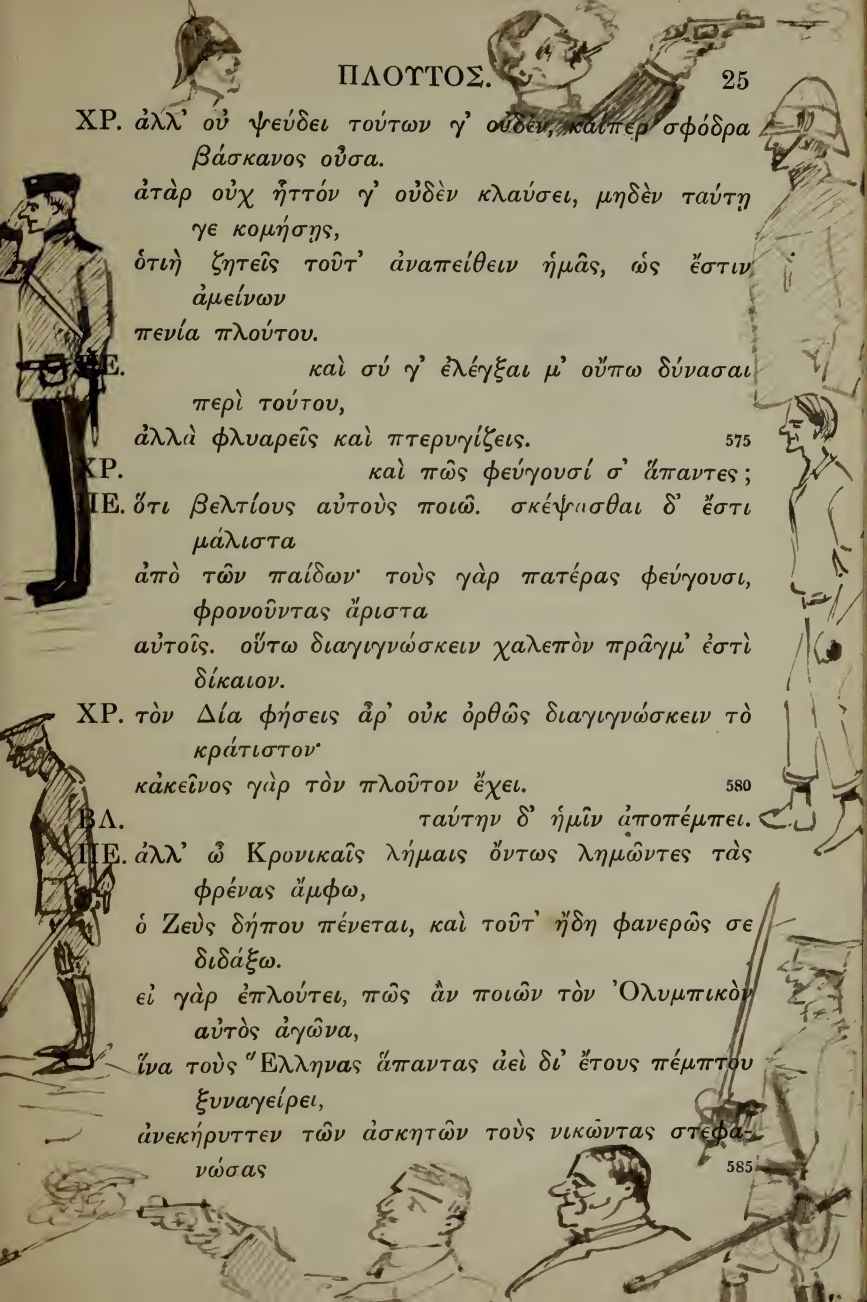 ΠΛΟΥΤΟΣ. 25
ΧΡ. ἀλλ' οὐ ψεύδει τούτων γ' οὐδὲν, καίπερ σφόδρα
βάσκανος οὖσα.
ἀτὰρ οὐχ ἧττόν γ' οὐδὲν κλαύσει, μηδὲν ταύτῃ
γε κομήσῃς,
ὁτιὴ ζητεῖς τοῦτ' ἀναπείθειν ἡμᾶς, ὡς ἔστιν
ἀμείνων
πενία πλούτου.
ΠΕ. καὶ σύ γ' ἐλέγξαι μ' οὔπω δύνασαι
περὶ τούτου,
ἀλλὰ φλυαρεῖς καὶ πτερυγίζεις. 575
ΧΡ. καὶ πῶς φεύγουσί σ' ἅπαντες;
ΠΕ. ὅτι βελτίους αὐτοὺς ποιῶ. σκέψασθαι δ' ἔστι
μάλιστα
ἀπὸ τῶν παίδων· τοὺς γὰρ πατέρας φεύγουσι,
φρονοῦντας ἄριστα
αὐτοῖς. οὕτω διαγιγνώσκειν χαλεπὸν πρᾶγμ' ἐστὶ
δίκαιον.
ΧΡ. τὸν Δία φήσεις ἆρ' οὐκ ὀρθῶς διαγιγνώσκειν τὸ
κράτιστον·
κἀκεῖνος γὰρ τὸν πλοῦτον ἔχει. 580
ΒΛ. ταύτην δ' ἡμῖν ἀποπέμπει.
ΠΕ. ἀλλ' ὦ Κρονικαῖς λήμαις ὄντως λημῶντες τὰς
φρένας ἄμφω,
ὁ Ζεὺς δήπου πένεται, καὶ τοῦτ' ἤδη φανερῶς σε
διδάξω.
εἰ γὰρ ἐπλούτει, πῶς ἂν ποιῶν τὸν Ὀλυμπικὸν
αὐτὸς ἀγῶνα,
ἵνα τοὺς Ἕλληνας ἅπαντας ἀεὶ δι' ἔτους πέμπτου
ξυναγείρει,
ἀνεκήρυττεν τῶν ἀσκητῶν τοὺς νικῶντας στεφα-
νώσας 585